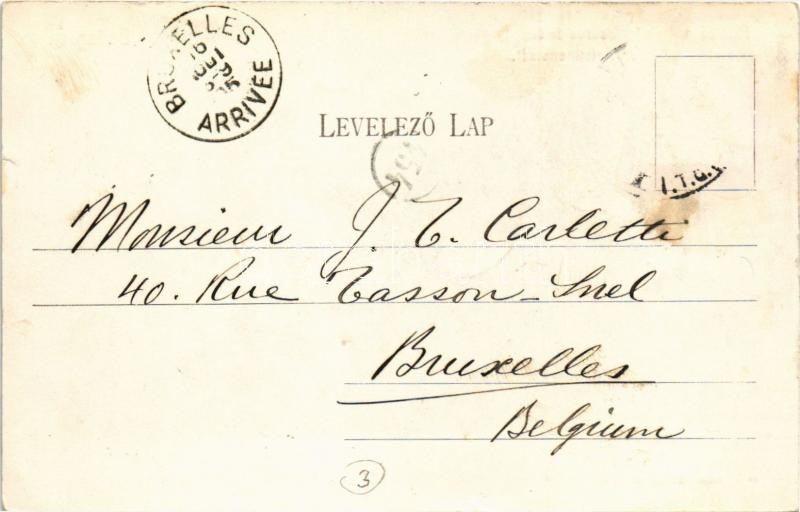 BRUXELLES
ARRIVÉE
LEVELEZŐ LAP
Monsieur J. T. Carletti
40. Rue Tasson-Snel
Bruxelles
Belgium
3